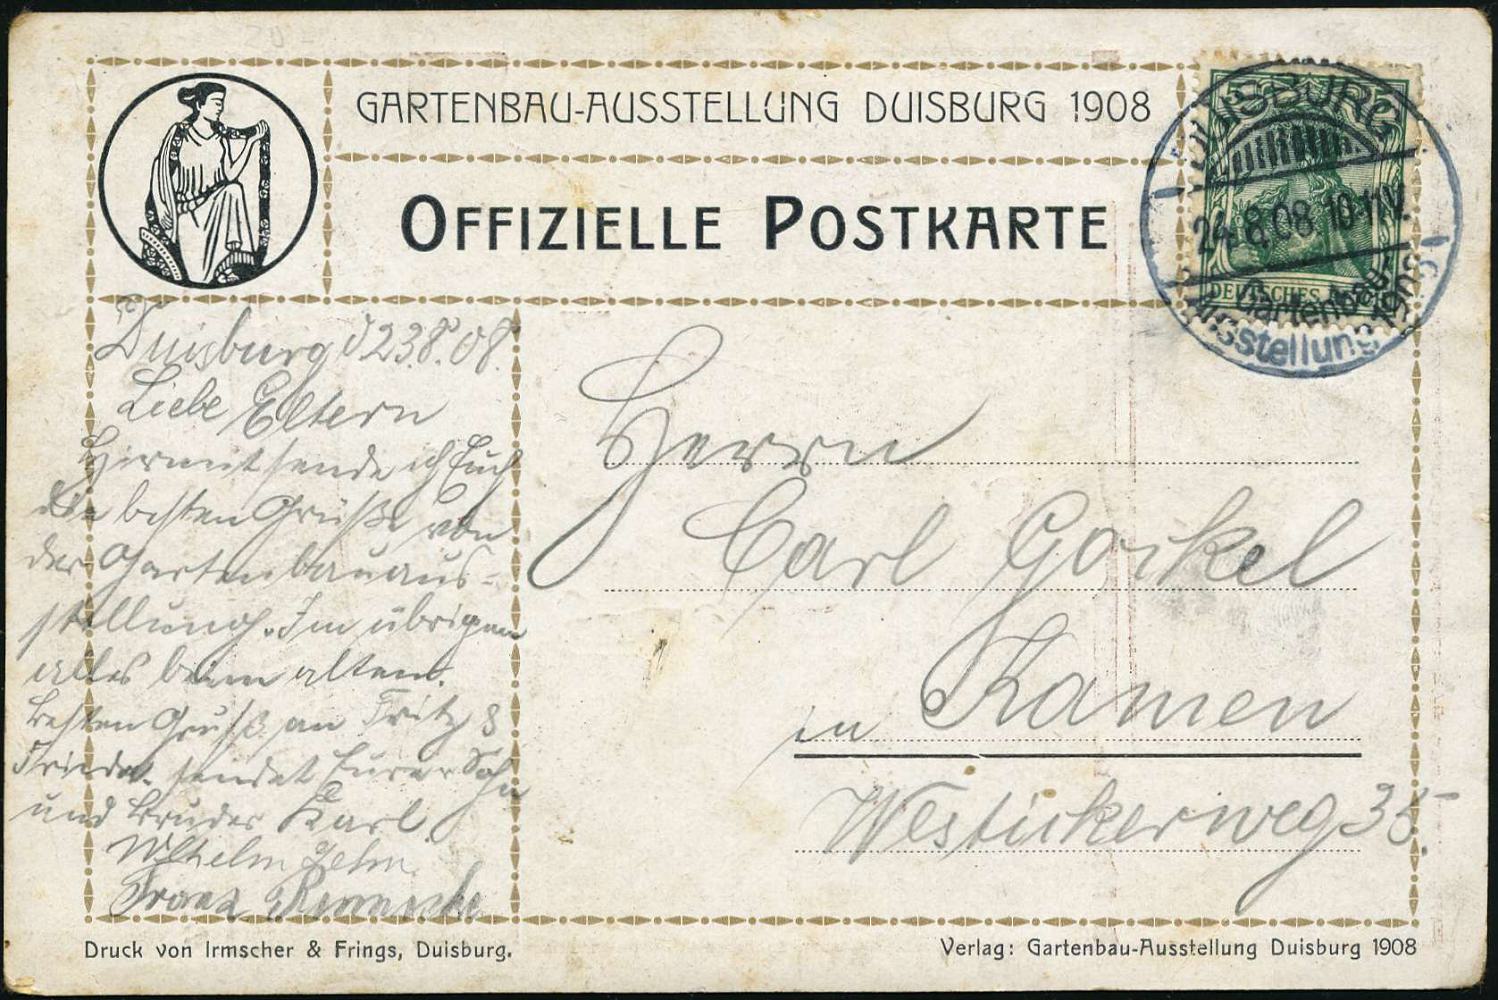 GARTENBAU-AUSSTELLUNG DUISBURG 1908
OFFIZIELLE POSTKARTE
DUISBURG
24.8.08.10-11V.
Gartenbau-
Ausstellung 1908
DEUTSCHES
Duisburg d 23.8.08.
Liebe Eltern
Hiermit sende ich Euch
die besten Grüße von
der Gartenbauaus-
stellung. Im übrigen
alles beim alten.
besten Gruß an Fritz &
Frieda. sendet Eurer Sohn
und Bruder Karl.
Wilhelm
Franz
Herrn
Carl Gockel
in Kamen
Westickerweg 35.
Druck von Irmscher & Frings, Duisburg.
Verlag: Gartenbau-Ausstellung Duisburg 1908